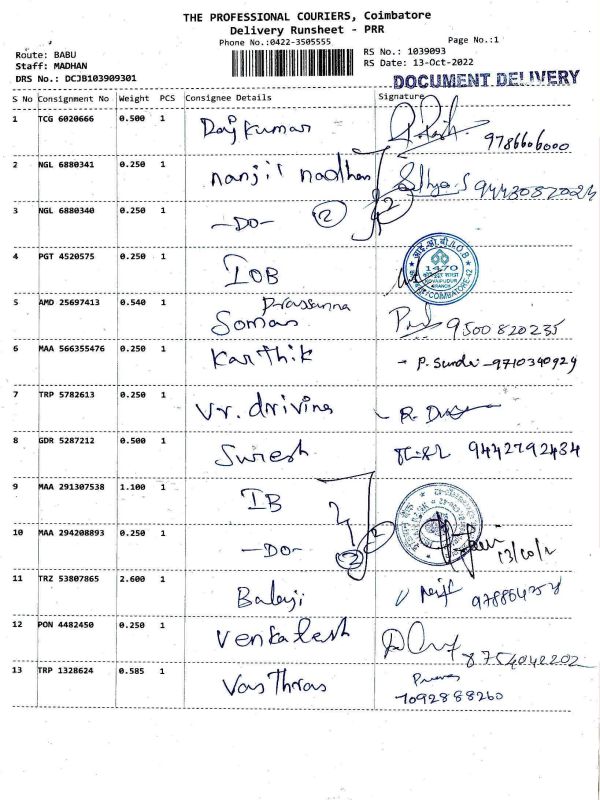 THE PROFESSIONAL COURIERS, Coimbatore
Delivery Runsheet - PRR
Phone No.:0422-3505555
Page No.:1
Route: BABU
RS No.: 1039093
Staff: MADHAN
RS Date: 13-Oct-2022
DRS No.: DCJB103909301
DOCUMENT DELIVERY
S No Consignment No Weight PCS Consignee Details Signature
1 TCG 6020666 0.500 1 Rajkumar 9786606000
2 NGL 6880341 0.250 1 nanjil nadhan Sathya.S
3 NGL 6880340 0.250 1 -DO- 2 2
4 PGT 4520575 0.250 1 IOB 1470
COIMBATORE-42
5 AMD 25697413 0.540 1 Prasanna
Soman 9500820235
6 MAA 566355476 0.250 1 Karthik - P. Sundar - 9710340929
7 TRP 5782613 0.250 1 Vr. driving
8 GDR 5287212 0.500 1 Suresh 9442792434
9 MAA 291307538 1.100 1 IB
10 MAA 294208893 0.250 1 -DO- 2 2
11 TRZ 53807865 2.600 1 Balaji
12 PON 4482450 0.250 1 Venkatesh 8754042202
13 TRP 1328624 0.585 1 Vasthras 7092888260